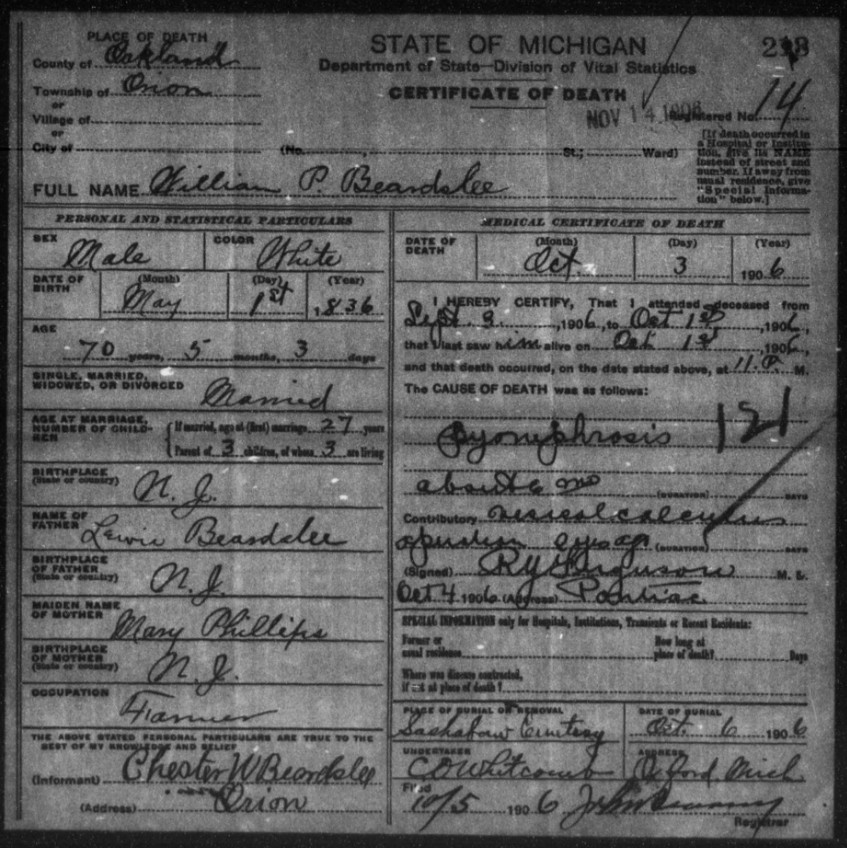 PLACE OF DEATH
County of Oakland
Township of Orion
or
Village of
or
City of
STATE OF MICHIGAN
Department of State—Division of Vital Statistics
CERTIFICATE OF DEATH
NOV 14 1906
Registered No. 14
(No. , St.; Ward)
[If death occurred in
a Hospital or Institu-
tion, give its NAME
instead of street and
number. If away from
usual residence, give
"Special Informa-
tion" below.]
FULL NAME William P. Beardslee
PERSONAL AND STATISTICAL PARTICULARS
SEX
Male
COLOR
White
DATE OF BIRTH
(Month) (Day) (Year)
May 1st 1836
AGE
70 years, 5 months, 3 days
SINGLE, MARRIED,
WIDOWED, OR DIVORCED
Married
AGE AT MARRIAGE,
NUMBER OF CHILD-
REN
If married, age at (first) marriage 27 years
Parent of 3 children, of whom 3 are living
BIRTHPLACE
(State or country)
N. J.
NAME OF
FATHER
Lewis Beardslee
BIRTHPLACE
OF FATHER
(State or country)
N. J.
MAIDEN NAME
OF MOTHER
Mary Phillips
BIRTHPLACE
OF MOTHER
(State or country)
N. J.
OCCUPATION
Farmer
THE ABOVE STATED PERSONAL PARTICULARS ARE TRUE TO THE
BEST OF MY KNOWLEDGE AND BELIEF
(Informant) Chester W Beardslee
(Address) Orion
MEDICAL CERTIFICATE OF DEATH
DATE OF DEATH
(Month) (Day) (Year)
Oct 3 1906
I HEREBY CERTIFY, That I attended deceased from
Sept. 3, 1906, to Oct 1st, 1906,
that I last saw him alive on Oct 1st, 1906,
and that death occurred, on the date stated above, at 11 P. M.
The CAUSE OF DEATH was as follows:
pyonephrosis 121
about 6 mo (DURATION) DAYS
Contributory vesical calculus
operation (DURATION) DAYS
(Signed) R Y Ferguson M. D.
Oct 4 1906 (Address) Pontiac
SPECIAL INFORMATION only for Hospitals, Institutions, Transients or Recent Residents:
Former or
usual residence
How long at
place of death? Days
Where was disease contracted,
if not at place of death?
PLACE OF BURIAL OR REMOVAL
Sashabaw Cemetery
DATE OF BURIAL
Oct. 6 1906
UNDERTAKER
C O Whitcomb
ADDRESS
Oxford Mich
Filed
10/5 1906
Registrar